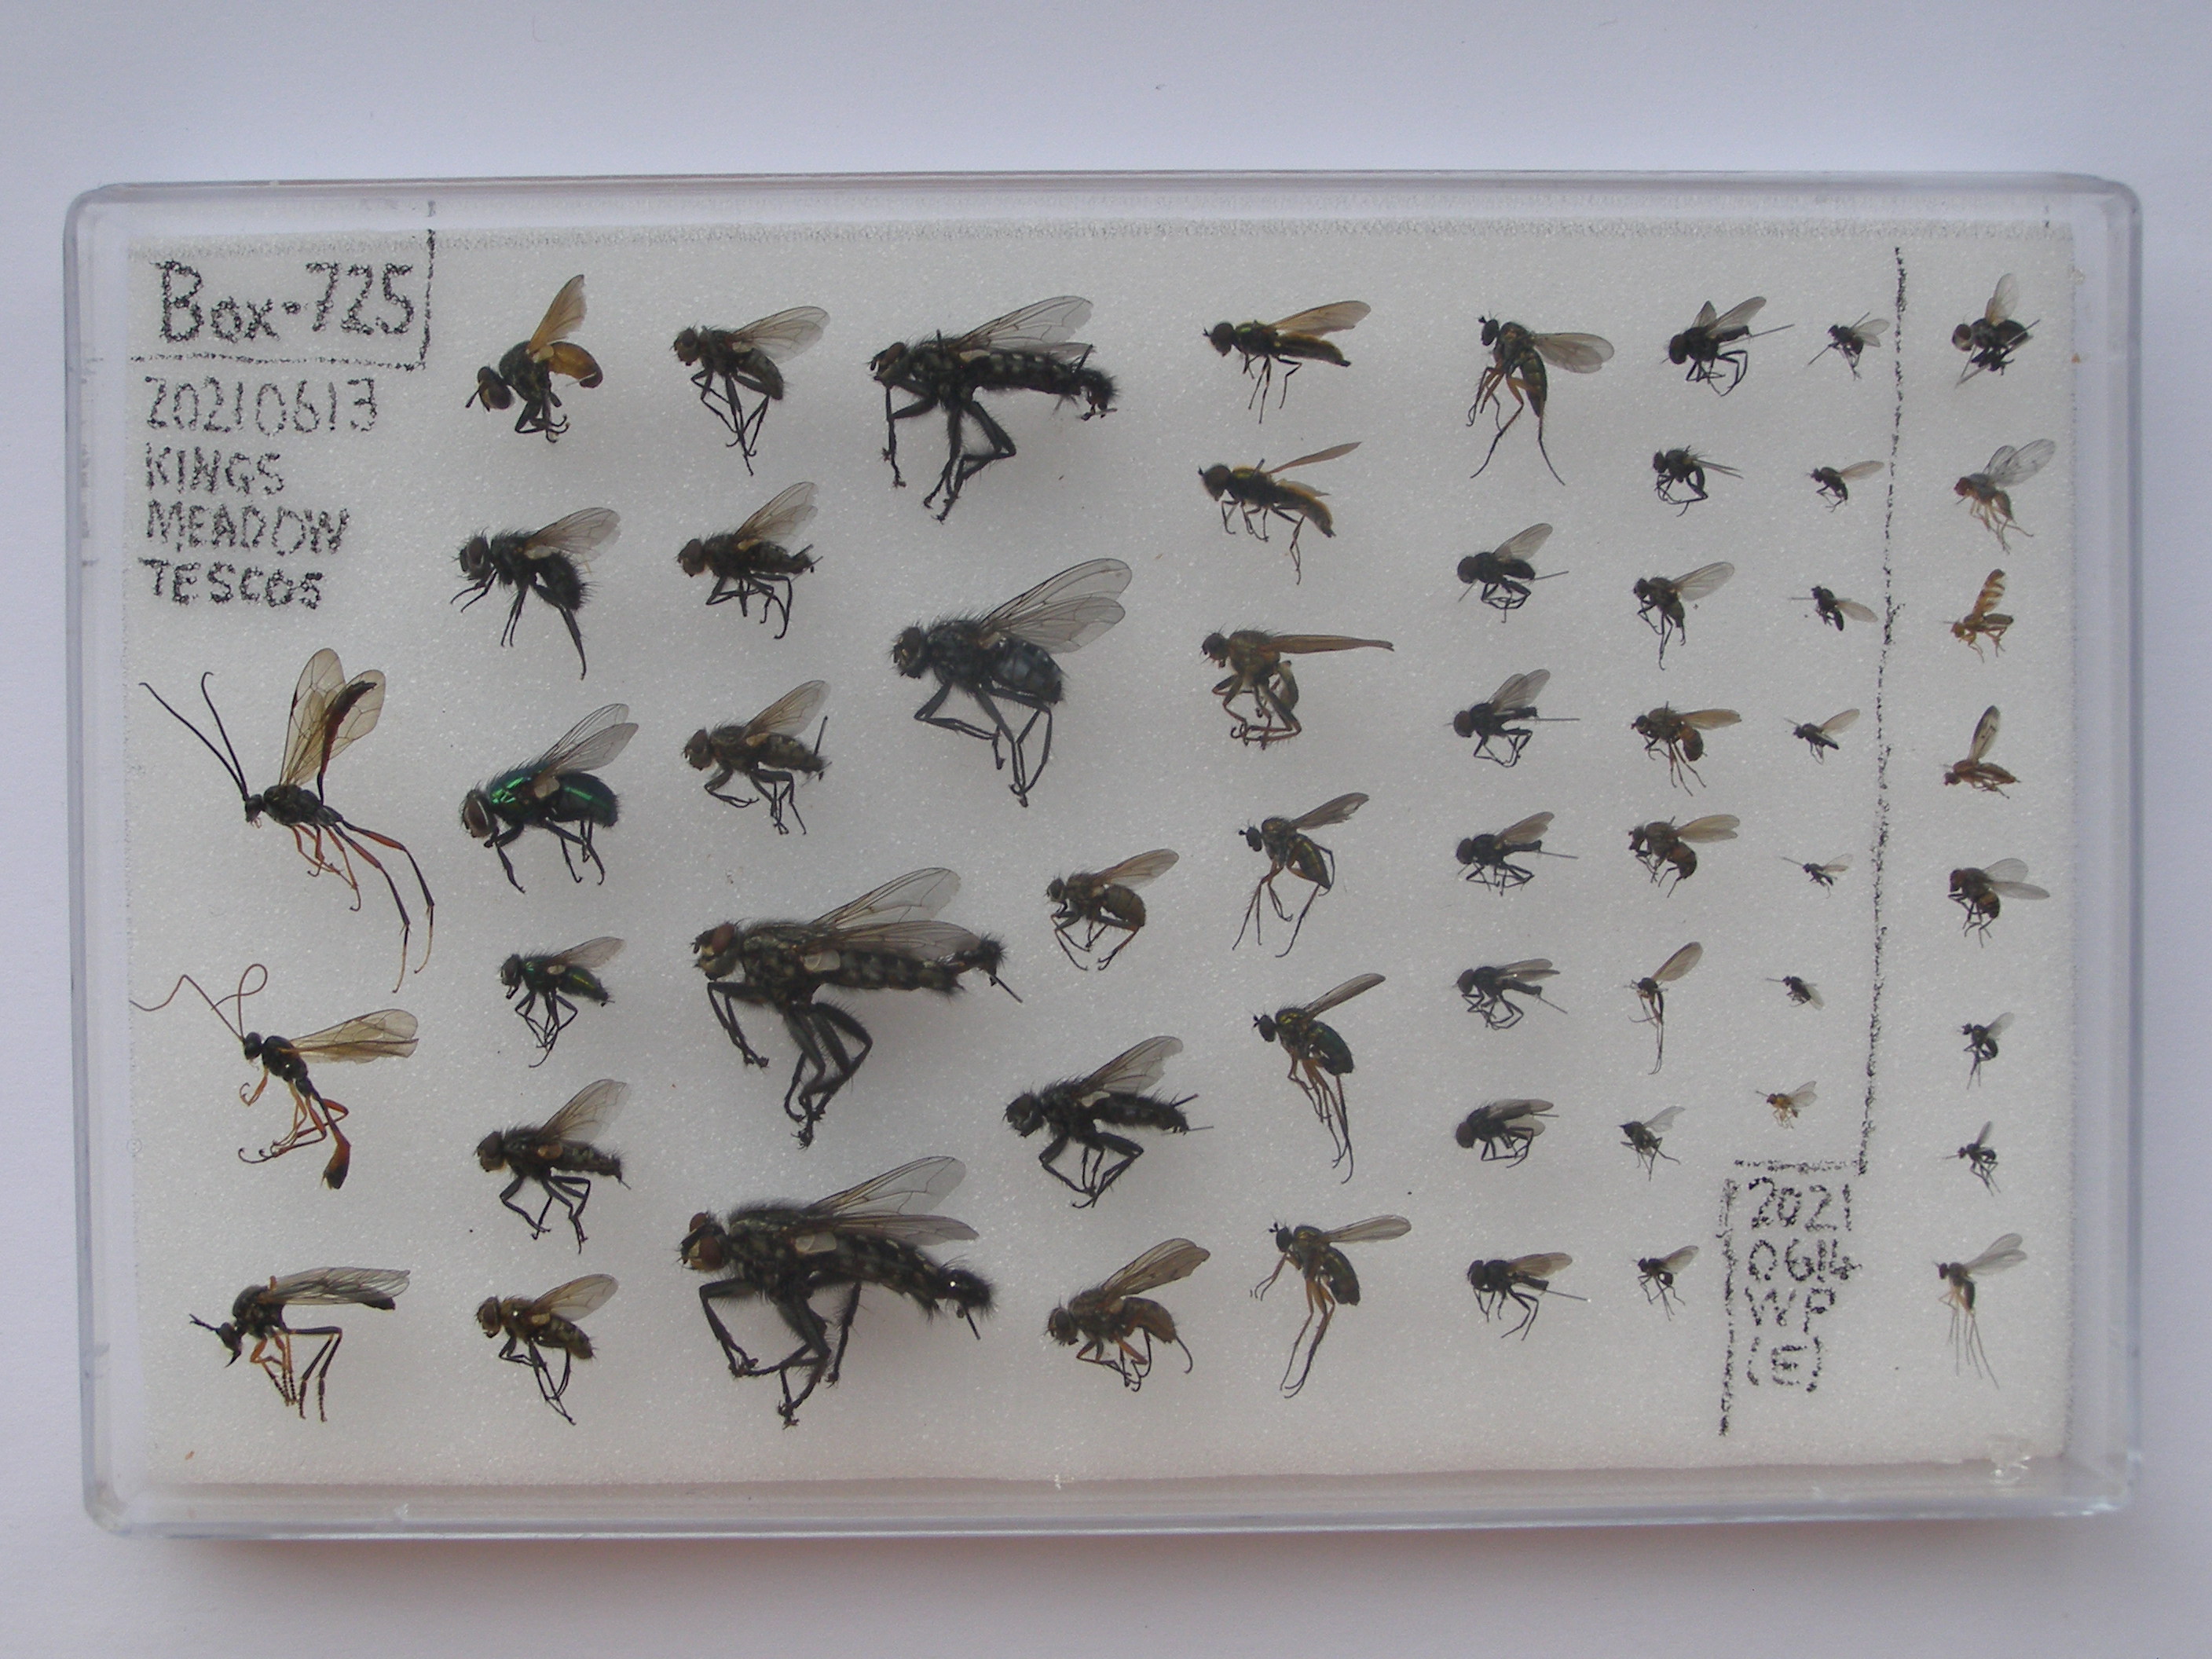 Box-725
20210613
KINGS
MEADOW
TESCOS
2021
0614